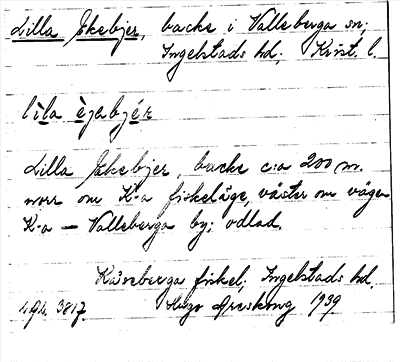 Lilla Ekebjer, backe i Valleberga sn;
Ingelstads hd; Krist. l.
lìla èjabjér
Lilla Ekebjer, backe c:a 200 m.
norr om K-a fiskeläge, väster om vägen
K-a — Valleberga by; odlad.
Kåseberga fiskel; Ingelstads hd.
3817. Hugo Areskoug 1939